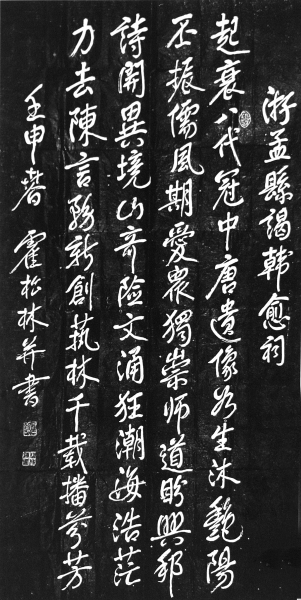 游孟縣謁韓愈祠
起衰八代冠中唐遺像如生沐艷陽
丕振儒風期愛衆獨崇師道盼興邦
詩開異境山奇險文涌狂潮海浩茫
力去陳言務新創藝林千載播芬芳
壬申春 霍松林并書